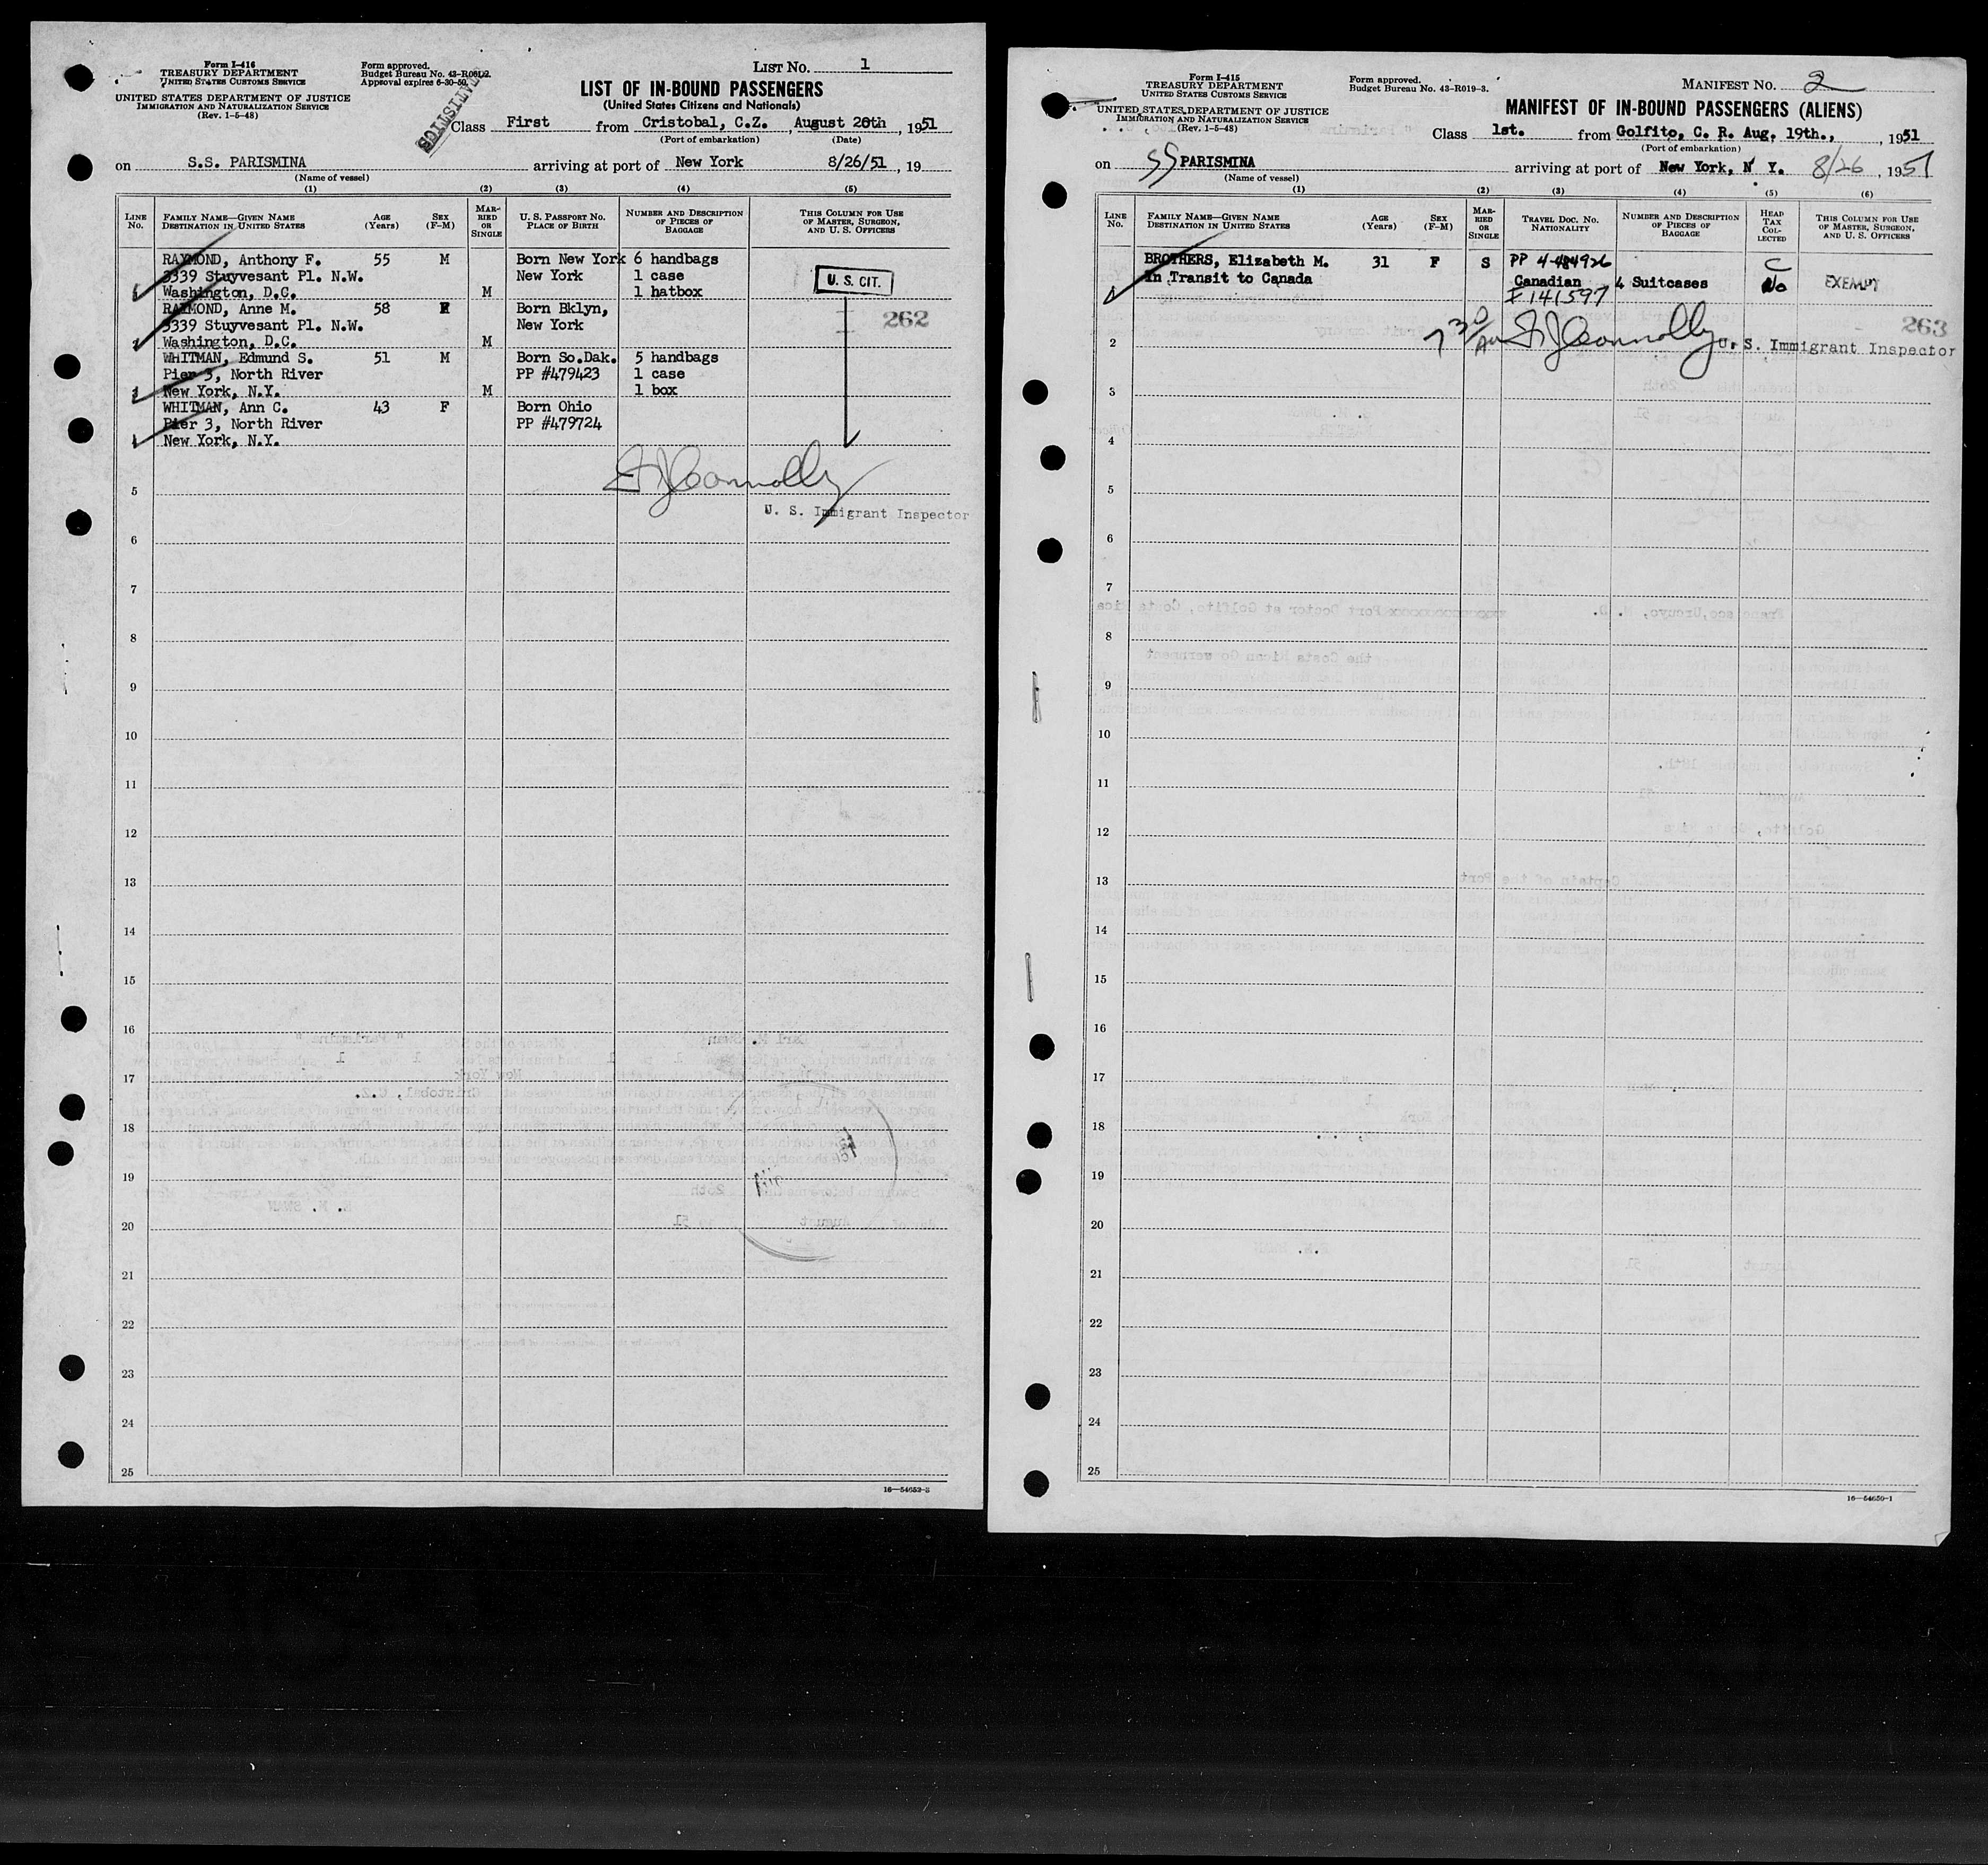 Form I-416
TREASURY DEPARTMENT
UNITED STATES CUSTOMS SERVICE
UNITED STATES DEPARTMENT OF JUSTICE
IMMIGRATION AND NATURALIZATION SERVICE
(Rev. 1-5-48)
Form approved.
Budget Bureau No. 43-R08D2.
Approval expires 6-30-50.
LIST NO. 1
LIST OF IN-BOUND PASSENGERS
(United States Citizens and Nationals)
Class First from Cristobal, C.Z., August 20th, 1951
(Port of embarkation) (Date)
on S.S. PARISMINA arriving at port of New York 8/26/51, 19
(Name of vessel)
(1) (2) (3) (4) (5)
LINE NO.
FAMILY NAME—GIVEN NAME
DESTINATION IN UNITED STATES
AGE (Years)
SEX (F-M)
MARRIED OR SINGLE
U. S. PASSPORT NO.
PLACE OF BIRTH
NUMBER AND DESCRIPTION OF PIECES OF BAGGAGE
THIS COLUMN FOR USE OF MASTER, SURGEON, AND U. S. OFFICERS
RAYMOND, Anthony F. 55 M Born New York 6 handbags
3339 Stuyvesant Pl. N.W. New York 1 case
Washington, D.C. M 1 hatbox
U. S. CIT.
RAYMOND, Anne M. 58 F Born Bklyn,
3339 Stuyvesant Pl. N.W. New York 262
Washington, D.C. M
WHITMAN, Edmund S. 51 M Born So.Dak. 5 handbags
Pier 3, North River PP #479423 1 case
New York, N.Y. M 1 box
WHITMAN, Ann C. 43 F Born Ohio
Pier 3, North River PP #479724
New York, N.Y.
Connolly
U. S. Immigrant Inspector
5
6
7
8
9
10
11
12
13
14
15
16
17
18
19
20
21
22
23
24
25
16—54652-3
Form I-415
TREASURY DEPARTMENT
UNITED STATES CUSTOMS SERVICE
UNITED STATES DEPARTMENT OF JUSTICE
IMMIGRATION AND NATURALIZATION SERVICE
(Rev. 1-5-48)
Form approved.
Budget Bureau No. 43-R019-3.
MANIFEST NO. 2
MANIFEST OF IN-BOUND PASSENGERS (ALIENS)
Class 1st. from Golfito, C. R. Aug. 19th., , 1951
(Port of embarkation)
on SS PARISMINA arriving at port of New York, N Y. 8/26, 1951
(Name of vessel)
(1) (2) (3) (4) (5) (6)
LINE NO.
FAMILY NAME—GIVEN NAME
DESTINATION IN UNITED STATES
AGE (Years)
SEX (F-M)
MARRIED OR SINGLE
TRAVEL DOC. NO.
NATIONALITY
NUMBER AND DESCRIPTION OF PIECES OF BAGGAGE
HEAD TAX COLLECTED
THIS COLUMN FOR USE OF MASTER, SURGEON, AND U. S. OFFICERS
BROTHERS, Elizabeth M. 31 F S PP 4-484926 C
In Transit to Canada Canadian 4 Suitcases No EXEMPT
I 141597
263
7 30 AM Connolly U. S. Immigrant Inspector
2
3
4
5
6
7
8
9
10
11
12
13
14
15
16
17
18
19
20
21
22
23
24
25
16—54650-1